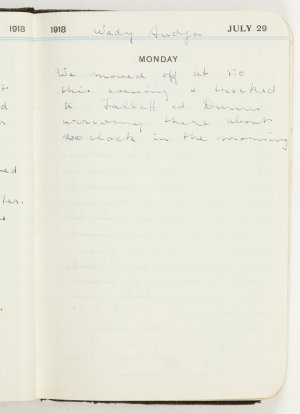 1918
1918 Wady Audja JULY 29
MONDAY
We moved off at 5.0
this evening & trecked
to Talleh ed Dumm
arriveing there about
20 clock in the morning